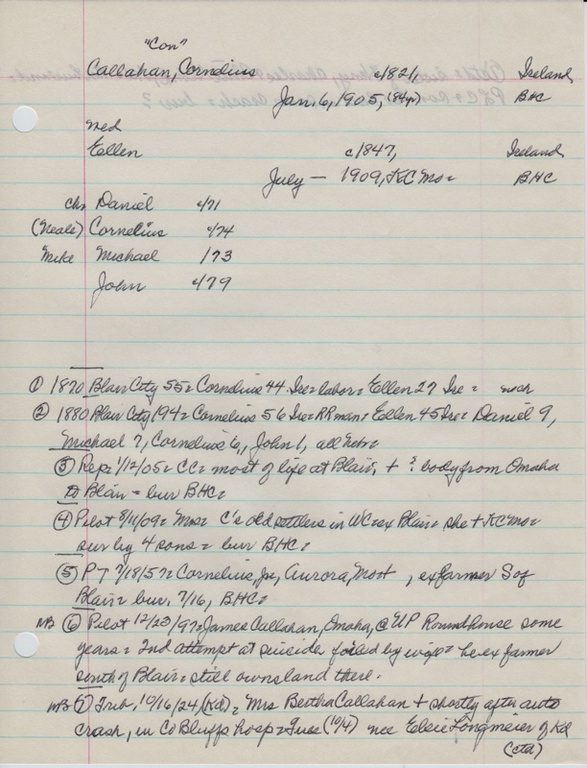 "Con"
Callahan, Cornelius c1821, Ireland
Jan. 6, 1905, (84yr) BHC
med
Ellen c1847, Ireland
July — 1909, KC Mo= BHC
chn Daniel c/71
(Neale) Cornelius c/74
Mike Michael /73
John c/79
① 1870 Blair City 55= Cornelius 44 Ire= labor= Ellen 27 Ire =
② 1880 Blair City 194= Cornelius 56 Ire= RR man= Ellen 45 Ire= Daniel 9,
Michael 7, Cornelius 6, John 1, all Neb=
③ Rep= 1/12/05= CC= most of life at Blair, + ? body from Omaha
to Blair = bur BHC=
④ Pilot 8/11/09= Mrs= C's old settlers in WC= ex Blair= she + KC Mo=
sur by 4 sons = bur BHC=
⑤ PT 7/18/57= Cornelius, Jr, Aurora, , ex farmer S of
Blair= bur. 7/16, BHC=
NB ⑥ Pilot 12/23/97= James Callahan, Omaha, @ UP Roundhouse some
years = 2nd attempt at suicide foiled by wife= he ex farmer
south of Blair= still owns land there.
NB ⑦ Trib, 10/16/24 (Kd)= Mrs Bertha Callahan + shortly after auto
crash, in Co Bluffs hosp= Tues (10/4) nee Elsie Longmeier of Kd
(ctd)